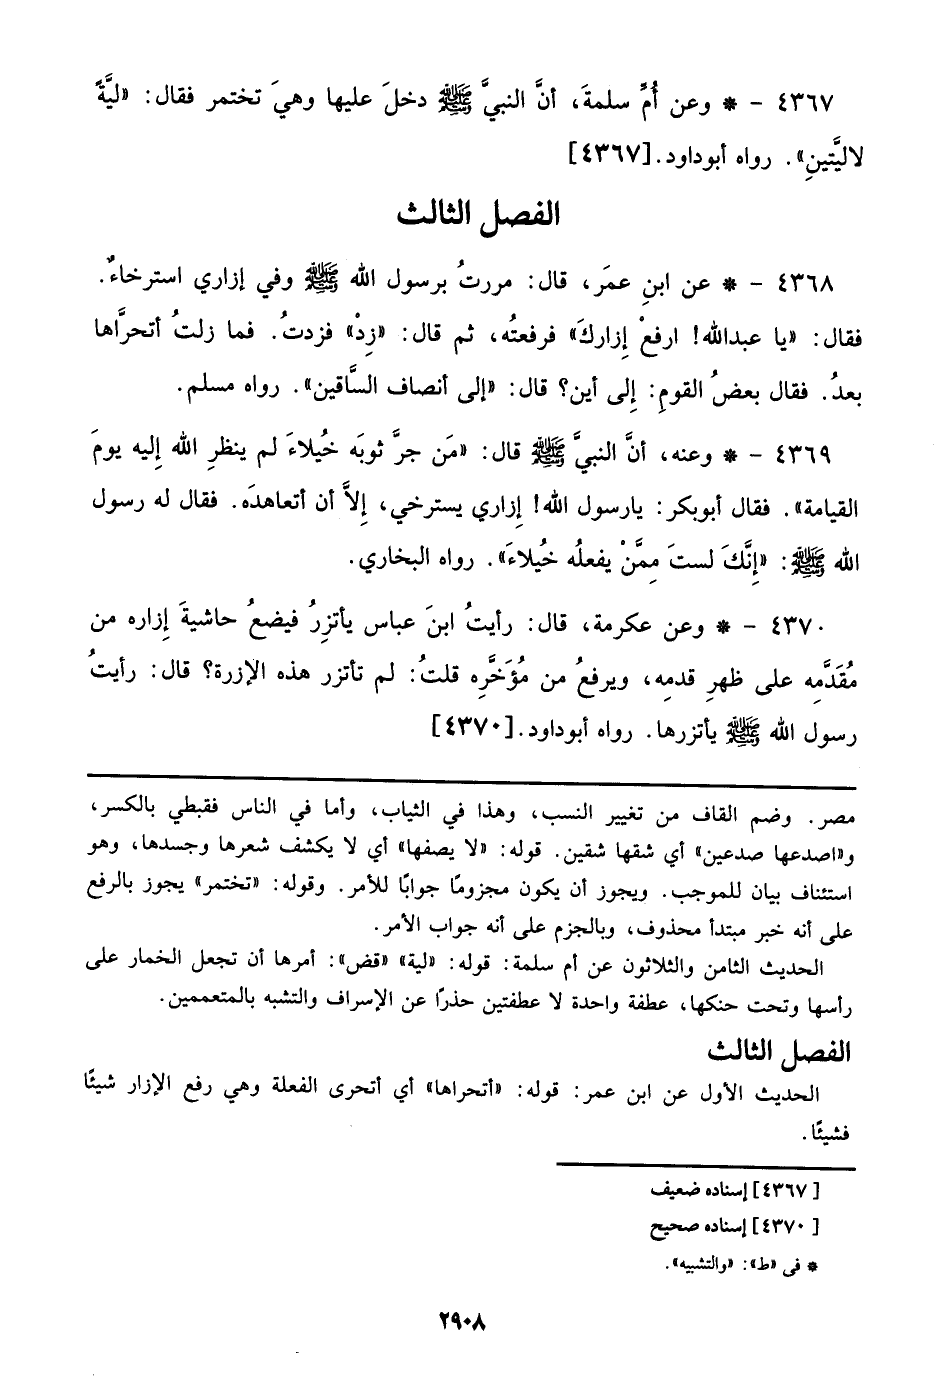 ٤٣٦٧ - * وعن أُمِّ سلمةَ، أنَّ النبيَّ ﷺ دخلَ عليها وهيَ تختمر فقال: «ليَّةً
لاليَّتينِ». رواه أبوداود.[٤٣٦٧]
الفصل الثالث
٤٣٦٨ - * عن ابنِ عمرَ، قال: مررتُ برسول الله ﷺ وفي إزاري استرخاءٌ.
فقال: «يا عبدالله! ارفعْ إِزاركَ» فرفعتُه، ثم قال: «زِدْ» فزدتُ. فما زلتُ أتحرَّاها
بعدُ. فقال بعضُ القومِ: إِلى أين؟ قال: «إِلى أنصاف السَّاقين». رواه مسلم.
٤٣٦٩ - * وعنه، أنَّ النبيَّ ﷺ قال: «مَن جرَّ ثوبَه خُيلاءَ لم ينظرِ الله إِليه يومَ
القيامة». فقال أبوبكر: يارسول الله! إِزاري يسترخي، إِلاَّ أن أتعاهدَه. فقال له رسول
الله ﷺ: «إِنَّكَ لستَ مِمَّنْ يفعلُه خُيلاءَ». رواه البخاري.
٤٣٧٠ - * وعن عكرمة، قال: رأيتُ ابنَ عباس يأتزرُ فيضعُ حاشيةَ إِزاره من
مُقَدَّمِه على ظهرِ قدمِه، ويرفعُ من مُؤَخَّرِه قلتُ: لم تأتزر هذه الإزرة؟ قال: رأيتُ
رسول الله ﷺ يأتزرها. رواه أبوداود.[٤٣٧٠]
مصر. وضم القاف من تغيير النسب، وهذا في الثياب، وأما في الناس فقبطي بالكسر،
و«اصدعها صدعين» أي شقها شقين. قوله: «لا يصفها» أي لا يكشف شعرها وجسدها، وهو
استئناف بيان للموجب. ويجوز أن يكون مجزومًا جوابًا للأمر. وقوله: «تختمر» يجوز بالرفع
على أنه خبر مبتدأ محذوف، وبالجزم على أنه جواب الأمر.
الحديث الثامن والثلاثون عن أم سلمة: قوله: «لية» «قض»: أمرها أن تجعل الخمار على
رأسها وتحت حنكها، عطفة واحدة لا عطفتين حذرًا عن الإسراف والتشبه بالمتعممين.
الفصل الثالث
الحديث الأول عن ابن عمر: قوله: «أتحراها» أي أتحرى الفعلة وهي رفع الإزار شيئًا
فشيئًا.
[٤٣٦٧] إسناده ضعيف
[٤٣٧٠] إسناده صحيح
* في «ط»: «والتشبيه».
٢٩٠٨